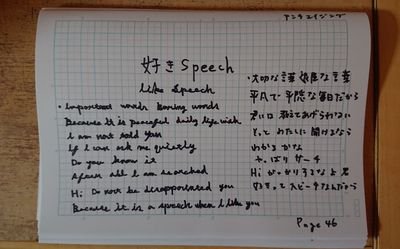 アンチエイジング
好きSpeech
Like Speech
・Important words Boring words
Because it is peaceful daily life wish
I am not told you
If I can ask me quietly
Do you know it
After all I am searched
Hi Do not be disappointed you
Because it is a speech when I like you
・大切な言葉 退屈な言葉
平凡で平穏な毎日だから
君には 教えてあげられない
そっと わたしに聞けるなら
わかるかな
やっぱり サーチ
Hi がっかりするなよ君
好きってスピーチなんだから
Page 46